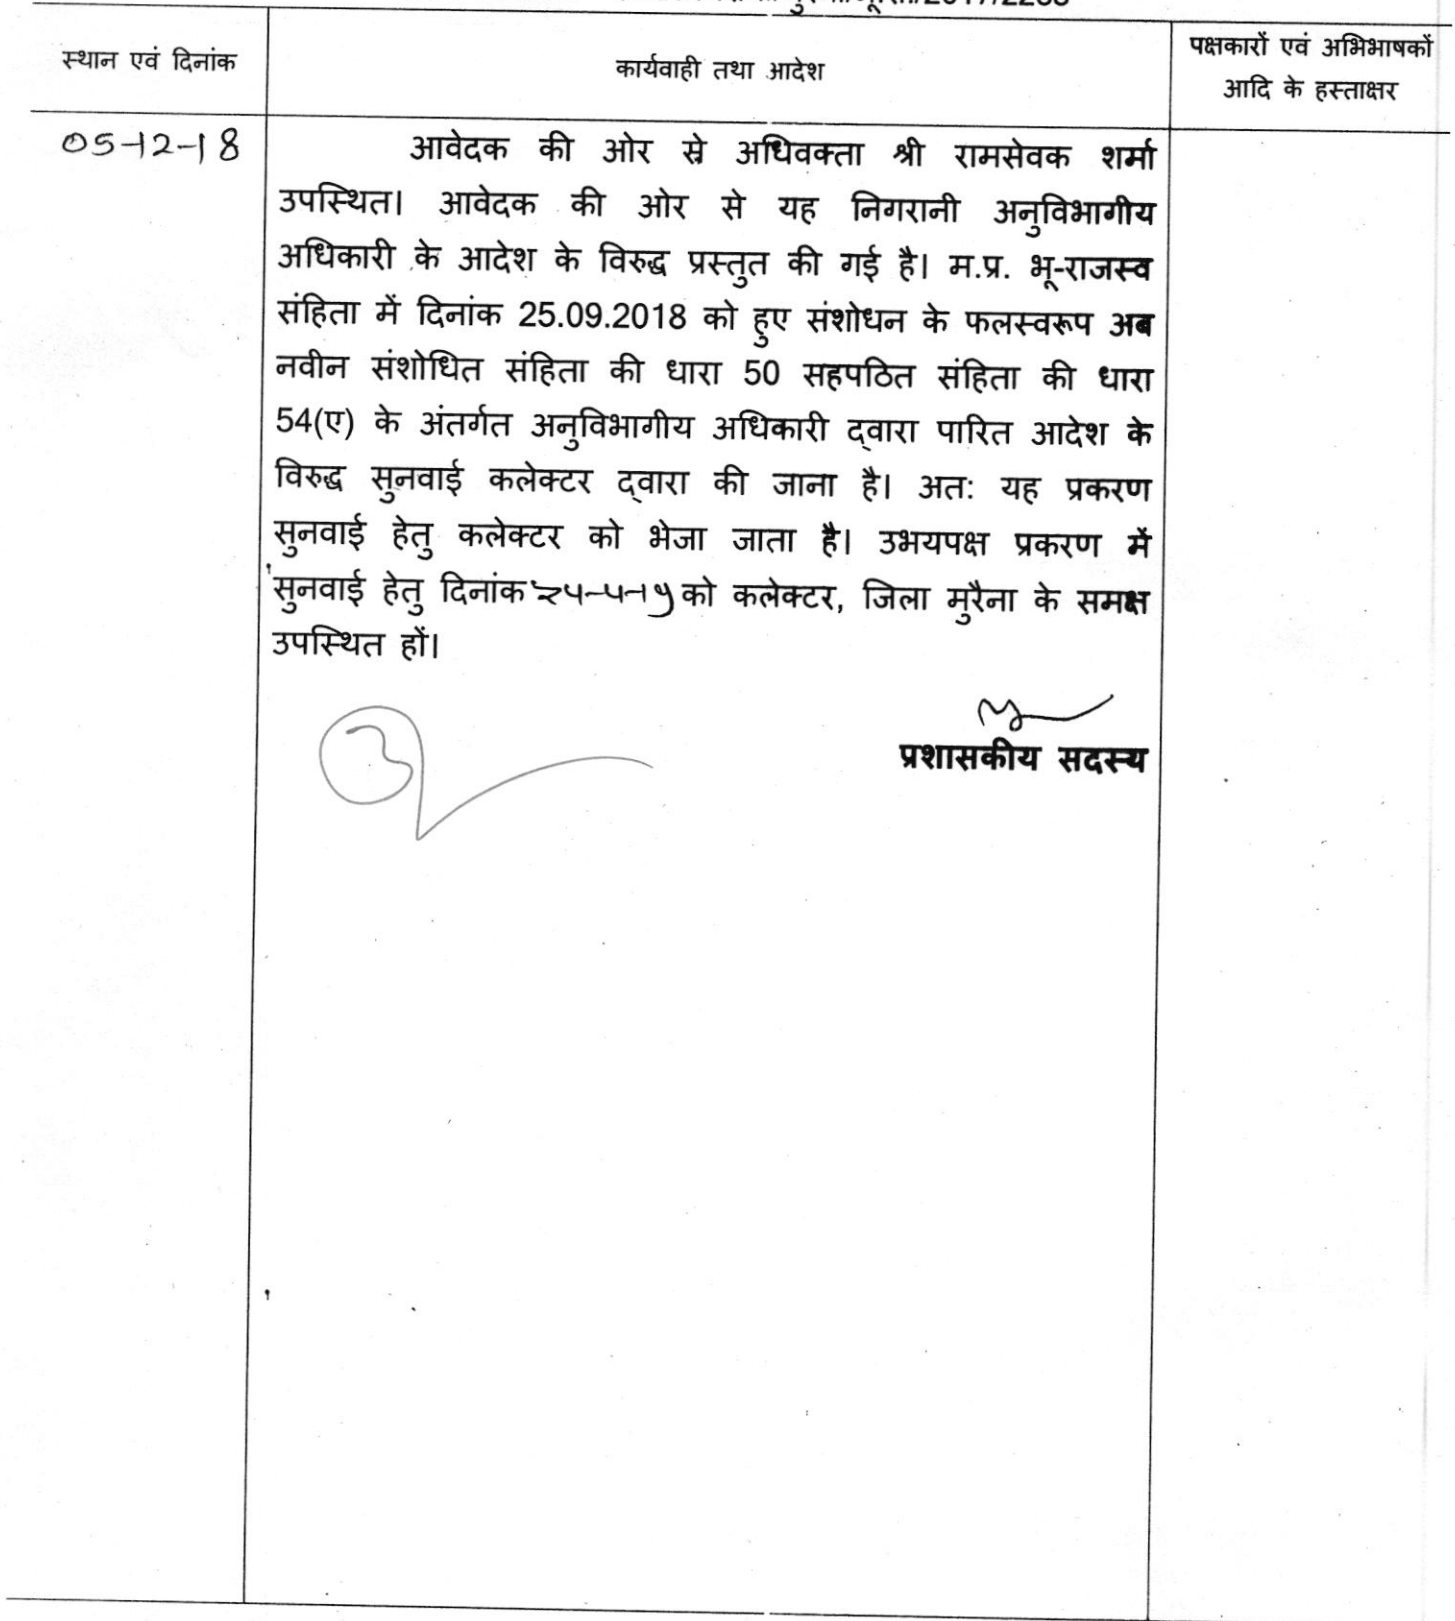 स्थान एवं दिनांक
कार्यवाही तथा आदेश
पक्षकारों एवं अभिभाषकों
आदि के हस्ताक्षर
05-12-18
आवेदक की ओर से अधिवक्ता श्री रामसेवक शर्मा
उपस्थित। आवेदक की ओर से यह निगरानी अनुविभागीय
अधिकारी के आदेश के विरुद्ध प्रस्तुत की गई है। म.प्र. भू-राजस्व
संहिता में दिनांक 25.09.2018 को हुए संशोधन के फलस्वरूप अब
नवीन संशोधित संहिता की धारा 50 सहपठित संहिता की धारा
54(ए) के अंतर्गत अनुविभागीय अधिकारी द्वारा पारित आदेश के
विरुद्ध सुनवाई कलेक्टर द्वारा की जाना है। अत: यह प्रकरण
सुनवाई हेतु कलेक्टर को भेजा जाता है। उभयपक्ष प्रकरण में
सुनवाई हेतु दिनांक को कलेक्टर, जिला मुरैना के समक्ष
उपस्थित हों।
प्रशासकीय सदस्य